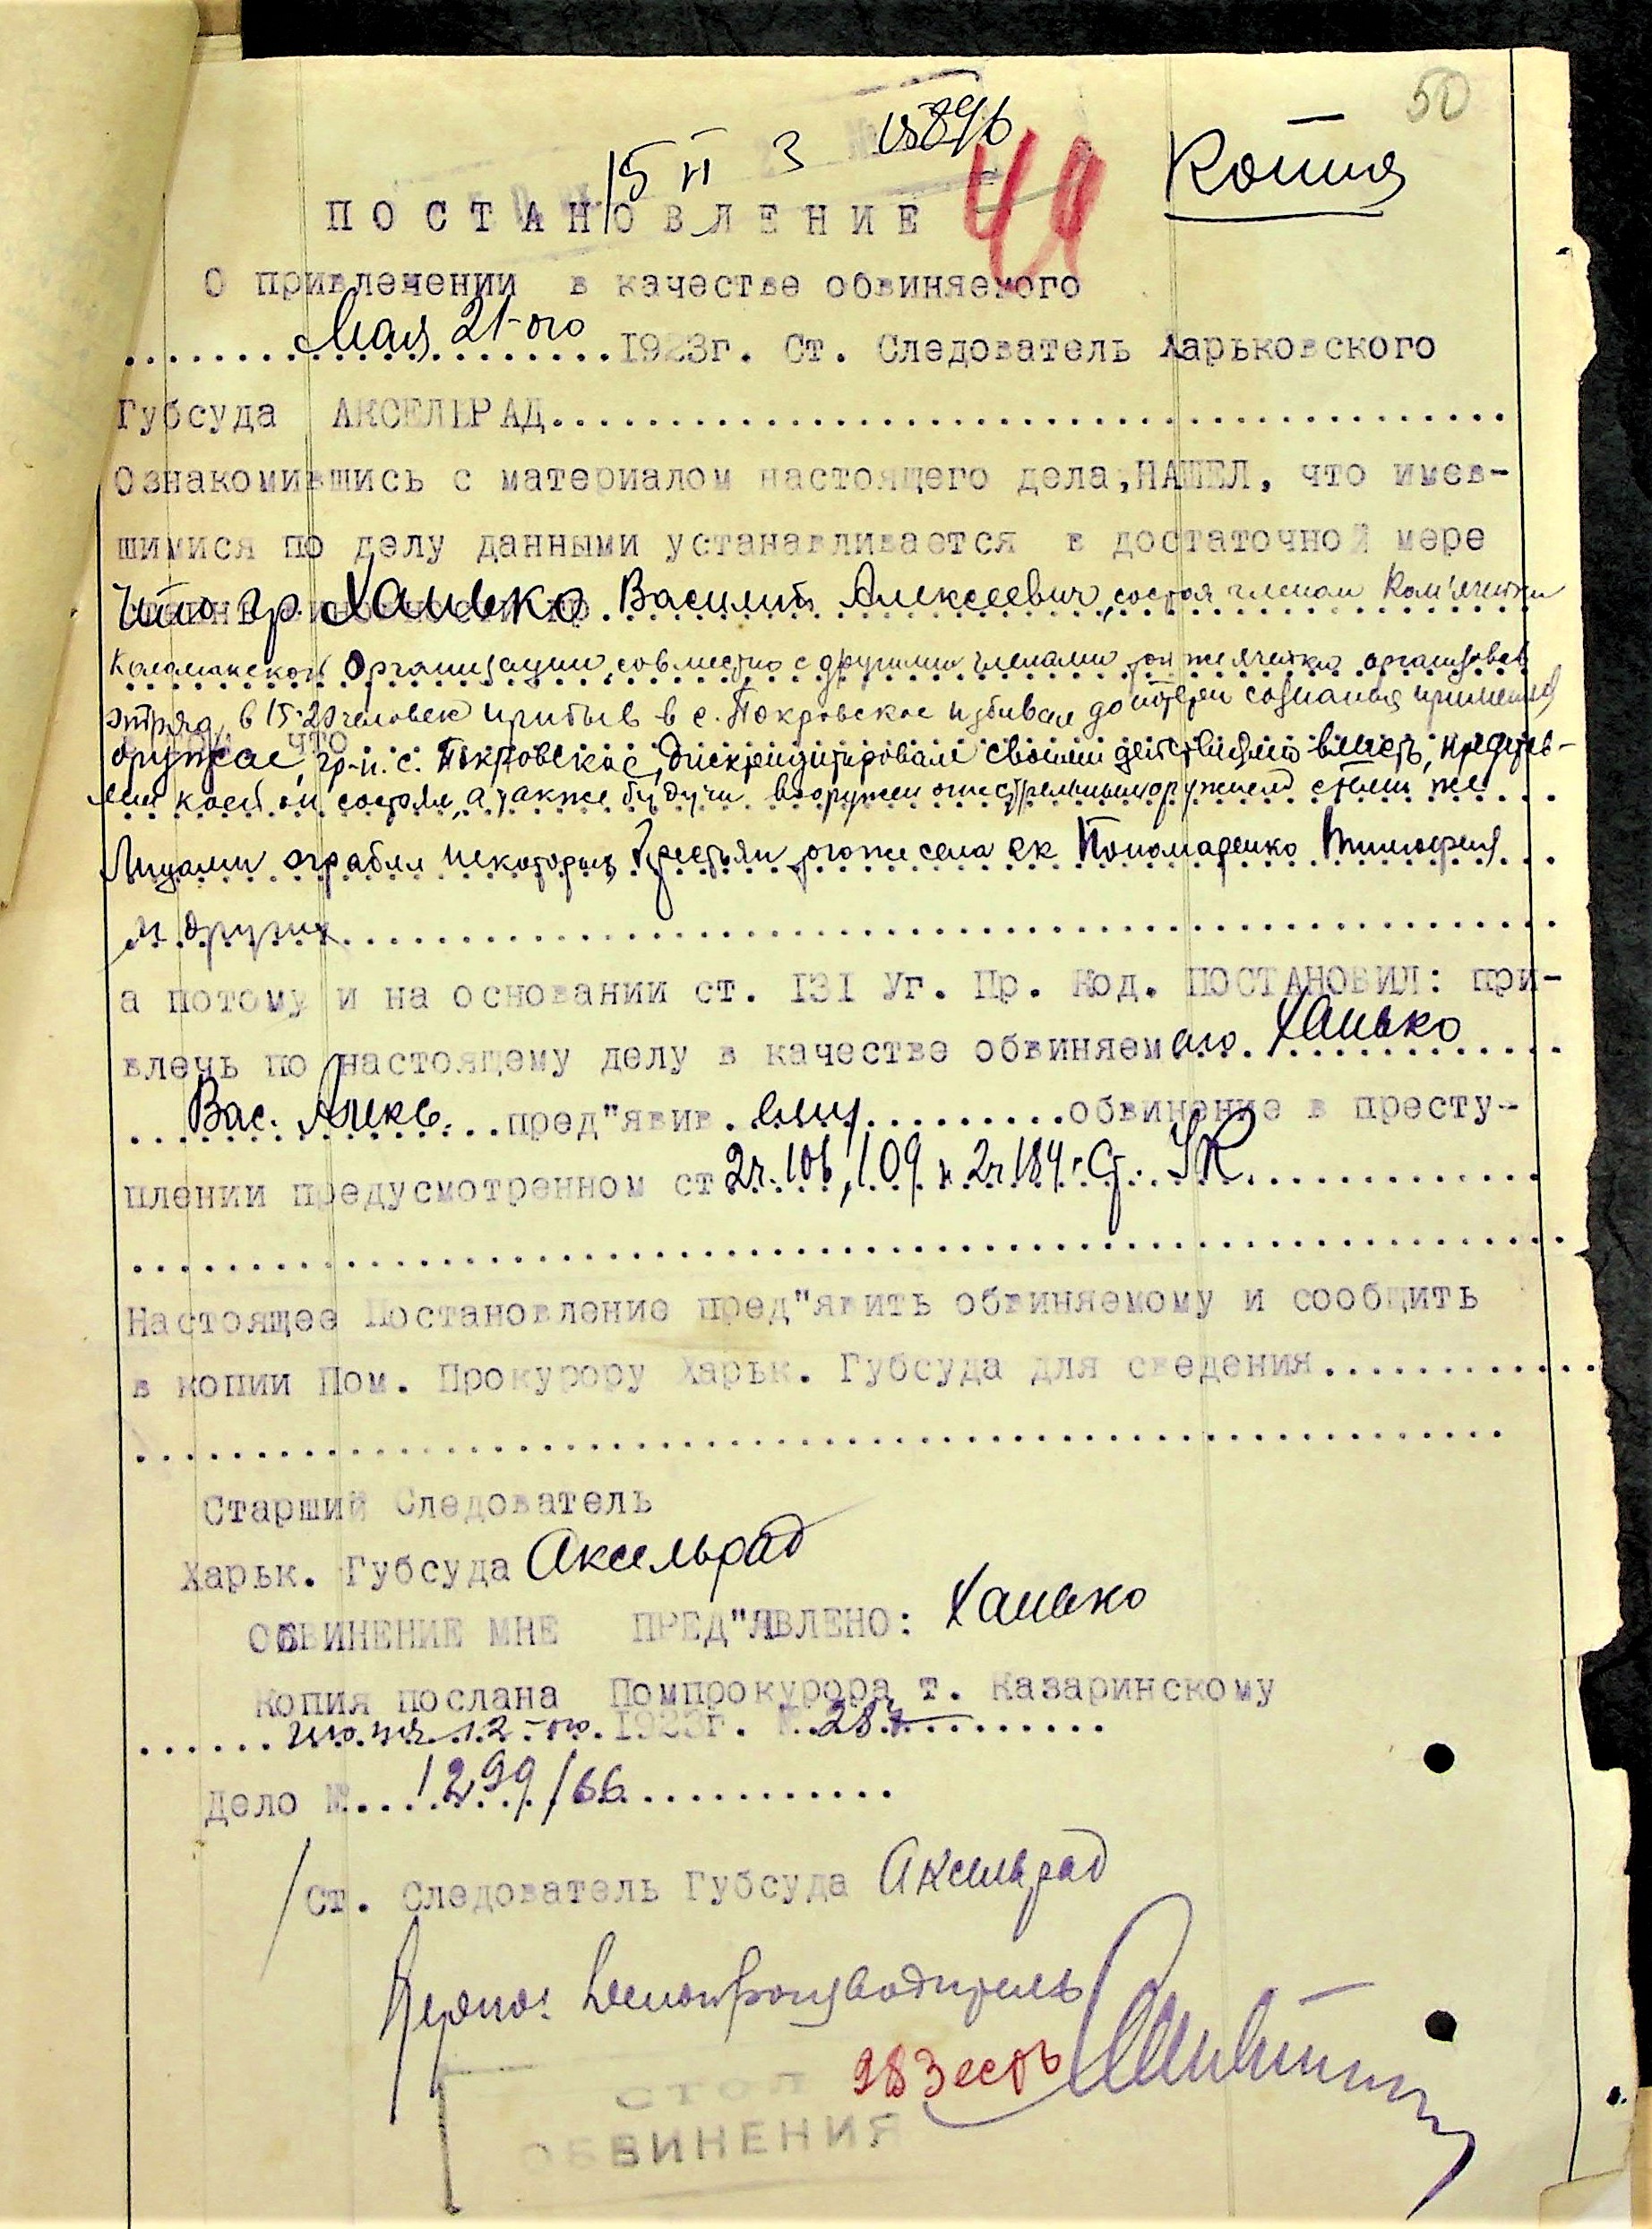 50
15 VI 3
Копия
49
ПОСТАНОВЛЕНИЕ
О привлечении в качестве обвиняемого
Мая 21-ого 1923г. Ст. Следователь Харьковского
Губсуда АКСЕЛЬРАД
Ознакомившись с материалом настоящего дела, НАШЕЛ, что имев-
шимися по делу данными устанавливается в достаточной мере
что гр. Ханько Василий Алексеевич, состоя членом Ком'ячейки
Коломакской Организации, совместно с другими членами той же ячейки организовав
отряд в 15-20 человек прибыв в с. Покровское избивал до потери сознания применяя
оружие, гр-н. с. Покровское, дискредитировали своими действиями власть, представ-
лен коей он состоял, а также будучи вооружен огнестрельным оружием с теми же
Лицами ограбил некоторых Крестьян того же села как Пономаренко Тимофея
и других
а потому и на основании ст. 131 Уг. Пр. Код. ПОСТАНОВИЛ: при-
влечь по настоящему делу в качестве обвиняемаго Ханько
Вас. Алекс. пред"явив ему обвинение в престу-
плении предусмотренном ст 2ч. 106, 109 и 2ч 184 Ст. УК
Настоящее Постановление пред"явить обвиняемому и сообщить
в копии Пом. Прокурору Харьк. Губсуда для сведения
Старший Следователь
Харьк. Губсуда Аксельрад
ОБВИНЕНИЕ МНЕ ПРЕД"ЯВЛЕНО: Ханько
Копия послана Помпрокурора т. Казаринскому
июня 12-го 1923г.
Дело № 1299/66
Ст. Следователь Губсуда Аксельрад
Делопроизводитель
283 есть
СТОЛ
ОБВИНЕНИЯ